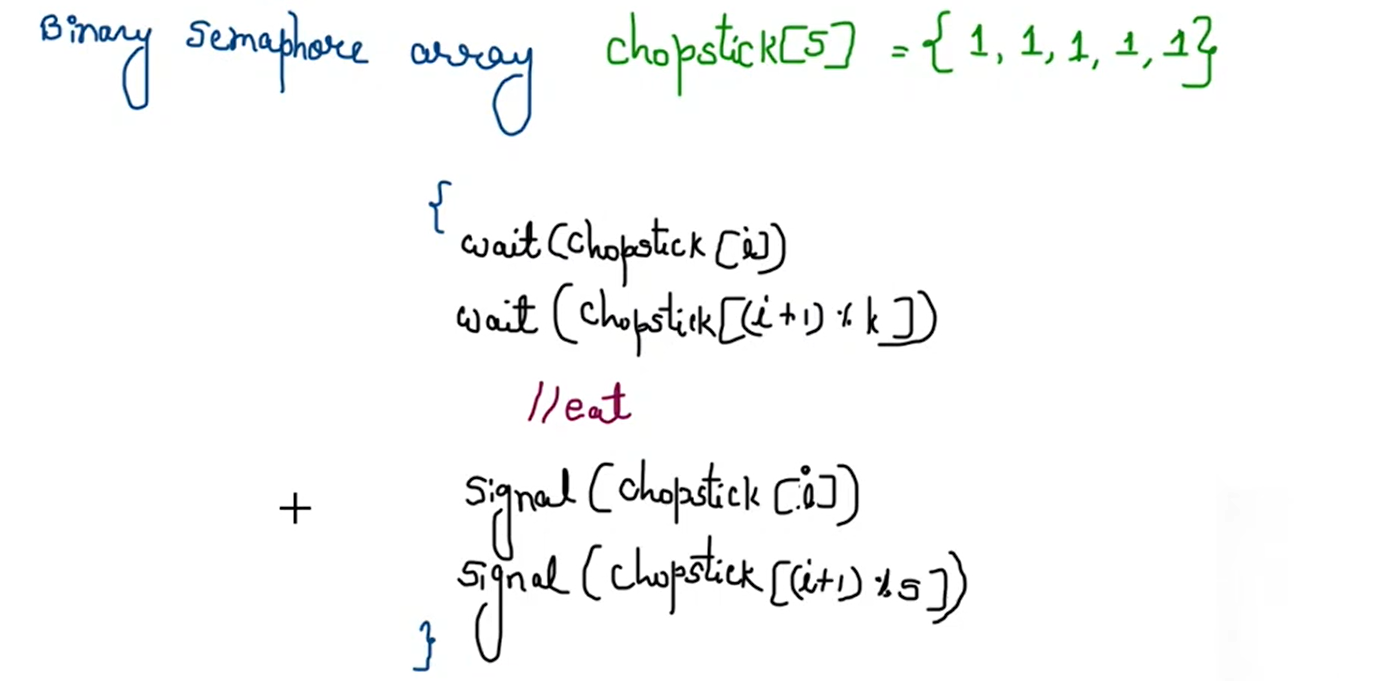 Binary Semaphore array chopstick[5] = { 1, 1, 1, 1, 1}
{
wait(chopstick[i])
wait(chopstick[(i+1) % k])
//eat
signal(chopstick[i])
signal(chopstick[(i+1) % 5])
}